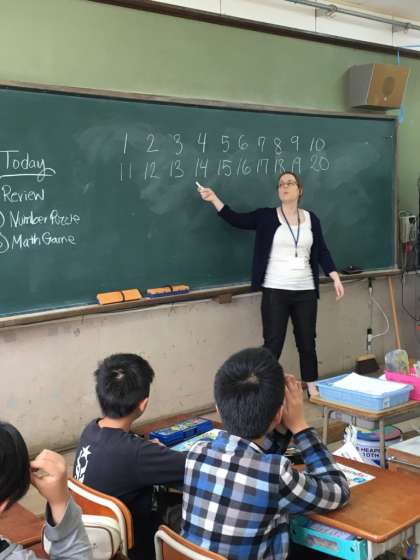 1 2 3 4 5 6 7 8 9 10
11 12 13 14 15 16 17 18 19 20
Today
Review
Number Puzzle
Math Game